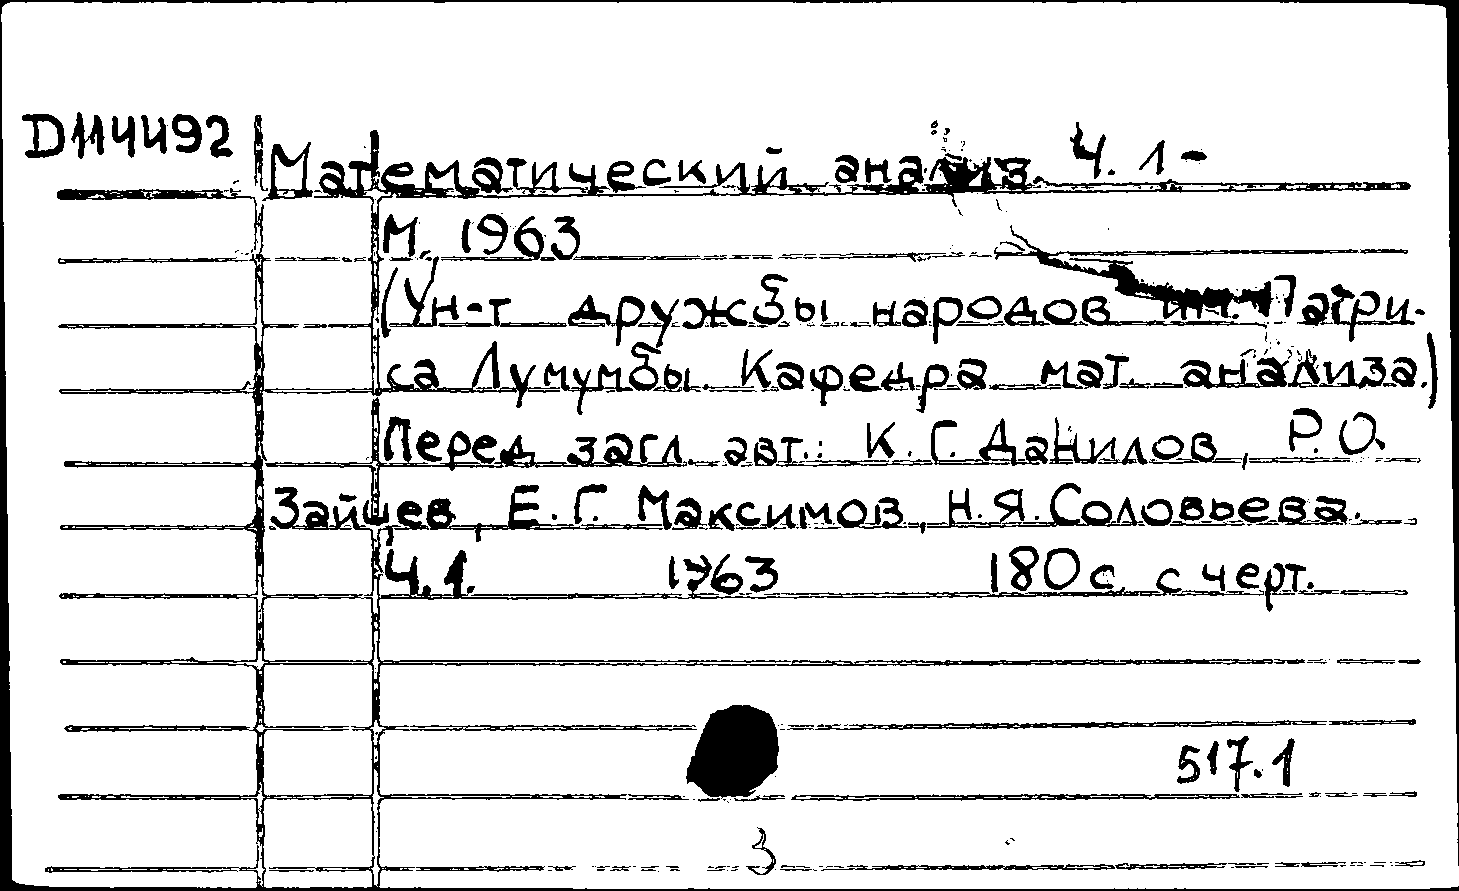 D114492
Математический анализ. Ч. 1-
М., 1963
(Ун-т дружбы народов им. Патри-
са Лумумбы. Кафедра мат. анализа.)
Перед загл. авт.: К. Г. Данилов, Р. О.
Зайцев, Е. Г. Максимов, Н. Я. Соловьева.
Ч. 1. 1963 180 с. с черт.
517.1
3